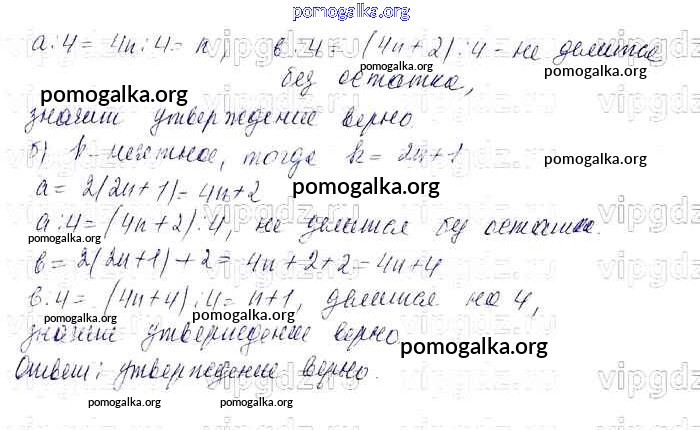 pomogalka.org
а:4 = 4n:4 = n, в:4 = (4n+2):4 - не делится
pomogalka.org pomogalka.org
без остатка,
pomogalka.org pomogalka.org
значит утверждение верно.
б) k - нечетное, тогда k = 2n+1
pomogalka.org
а = 2(2n+1) = 4n+2
pomogalka.org
а:4 = (4n+2):4, не делится без остатка.
pomogalka.org pomogalka.org
в = 2(2n+1)+2 = 4n+2+2 = 4n+4
в:4 = (4n+4):4 = n+1, делится на 4,
pomogalka.org pomogalka.org
значит утверждение верно
pomogalka.org
Ответ: утверждение верно.
pomogalka.org pomogalka.org